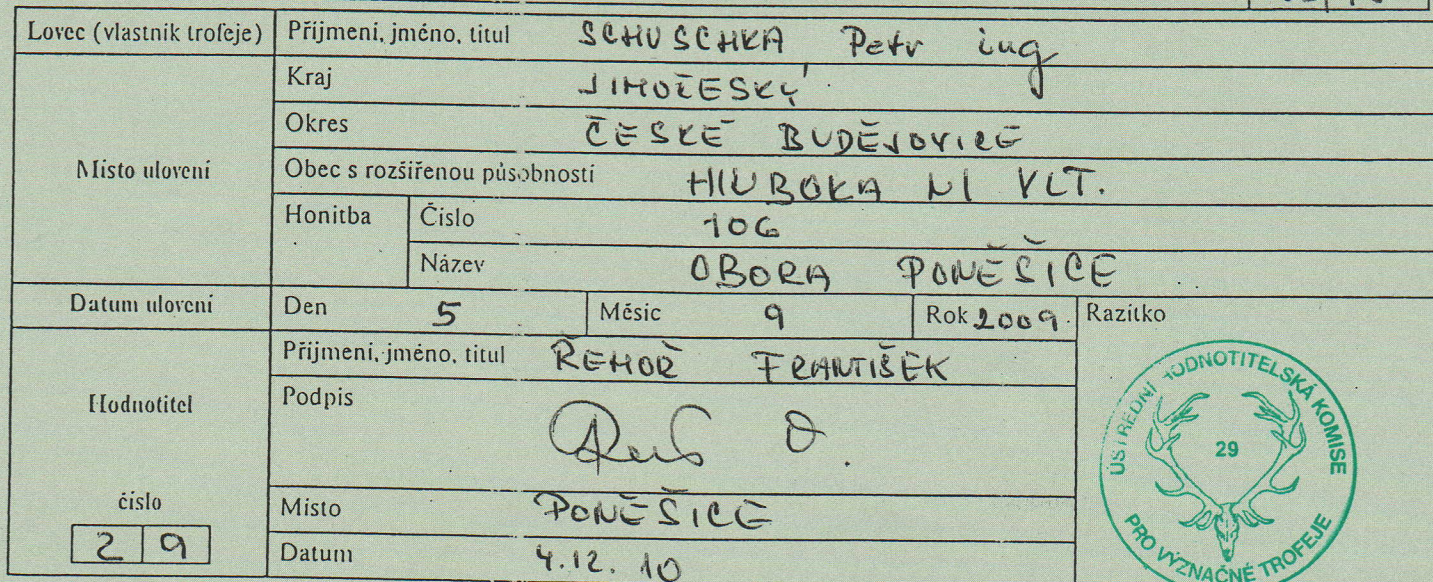 Lovec (vlastník trofeje) Příjmení, jméno, titul SCHUSCHKA Petr ing
Místo ulovení
Kraj JIHOČESKÝ
Okres ČESKÉ BUDĚJOVICE
Obec s rozšířenou působností HLUBOKA N/ VLT.
Honitba Číslo 106
Název OBORA PONĚŠICE
Datum ulovení Den 5 Měsíc 9 Rok 2009. Razítko
Hodnotitel
Příjmení, jméno, titul ŘEHOŘ FRANTIŠEK
Podpis
číslo
29
Místo PONĚŠICE
Datum 4.12.10
ÚSTŘEDNÍ HODNOTITELSKÁ KOMISE
29
PRO VÝZNAČNÉ TROFEJE